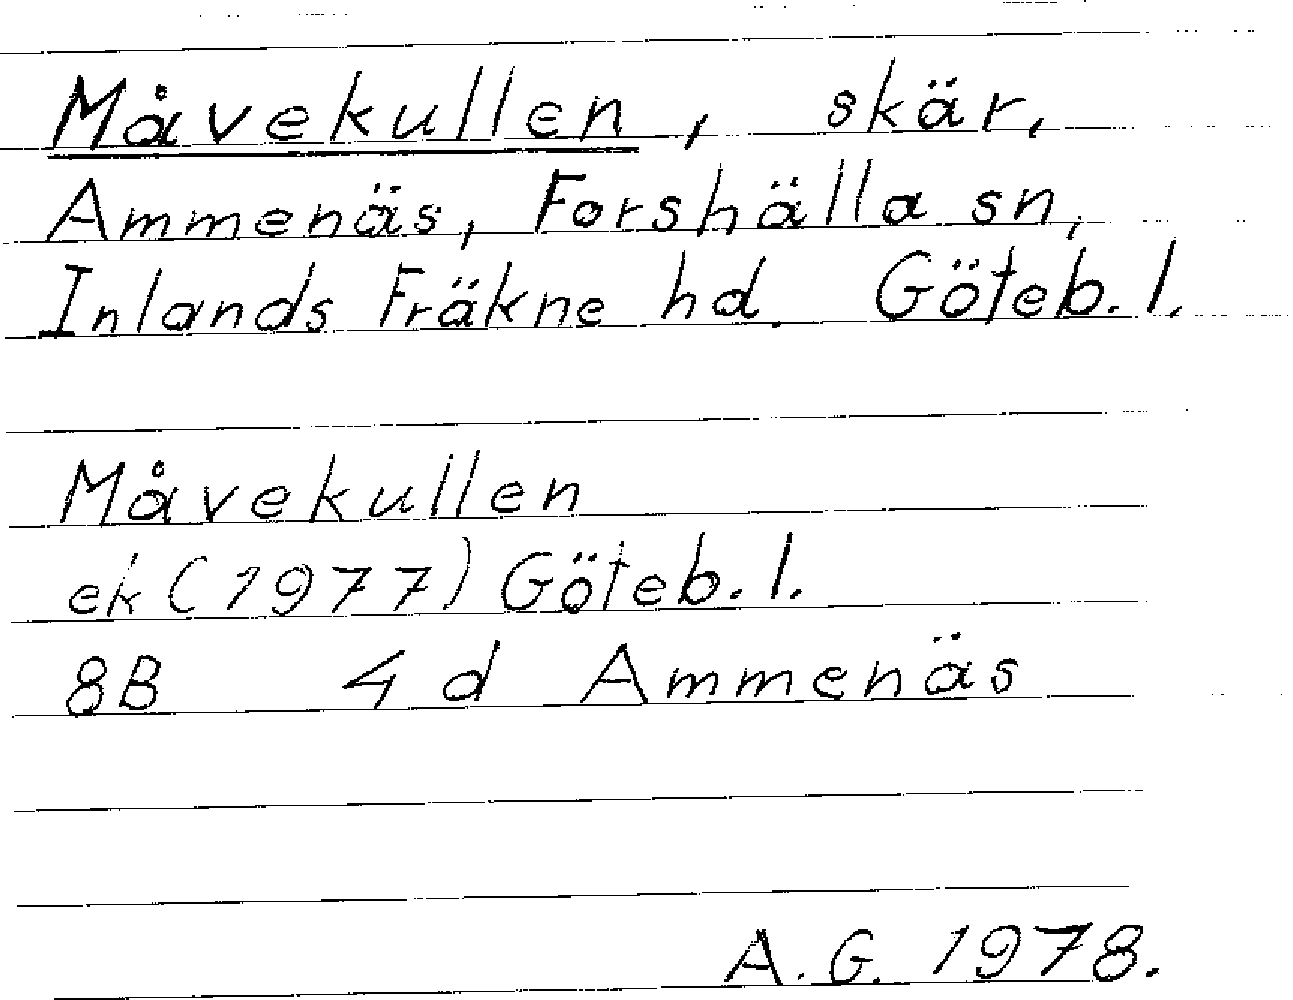 Måvekullen, skär,
Ammenäs, Forshälla sn,
Inlands Fräkne hd Göteb. l.
Måvekullen
ek (1977) Göteb. l.
8B 4 d Ammenäs
A. G. 1978.